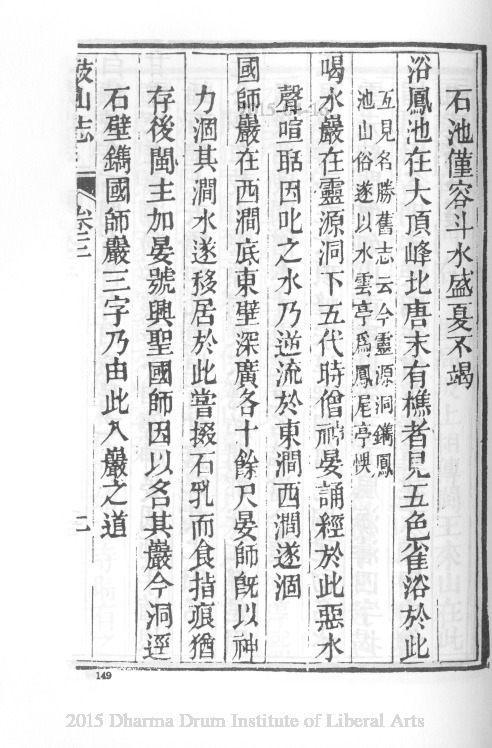 石池僅容斗水盛夏不竭
浴鳳池在大頂峰北唐末有樵者見五色雀浴於此
互見名勝舊志云今靈源洞鐫鳳
池山俗遂以水雲亭爲鳳尾亭悞
喝水巖在靈源洞下五代時僧神晏誦經於此惡水
聲喧聒因叱之水乃逆流於東澗西澗遂涸
國師巖在西澗底東壁深廣各十餘尺晏師旣以神
力涸其澗水遂移居於此嘗掇石乳而食指痕猶
存後閩主加晏號興聖國師因以名其巖今洞逕
石壁鐫國師巖三字乃由此入巖之道
鼓山志
卷三
二
149
2015 Dharma Drum Institute of Liberal Arts